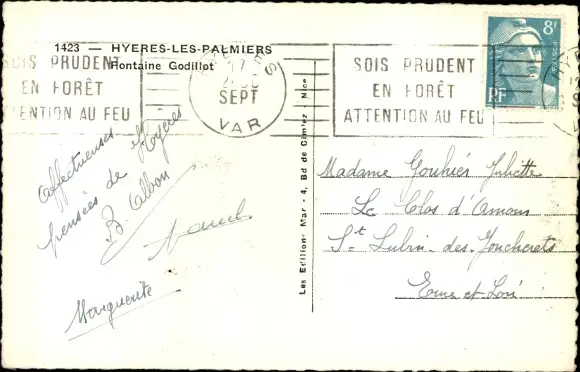 1423 — HYERES-LES-PALMIERS
Fontaine Godillot
SOIS PRUDENT
EN FORÊT
ATTENTION AU FEU
HYERES
17
SEPT
VAR
SOIS PRUDENT
EN FORÊT
ATTENTION AU FEU
8F
RF
Affectueuses
pensées de Hyères
B. Albon
Marguerite
Les Editions Mar - 4, Bd de Cimiez - Nice
Madame Gouhier Juliette
Le Clos d'Amour
St Lubin-des-Joncherets
Eure et Loir